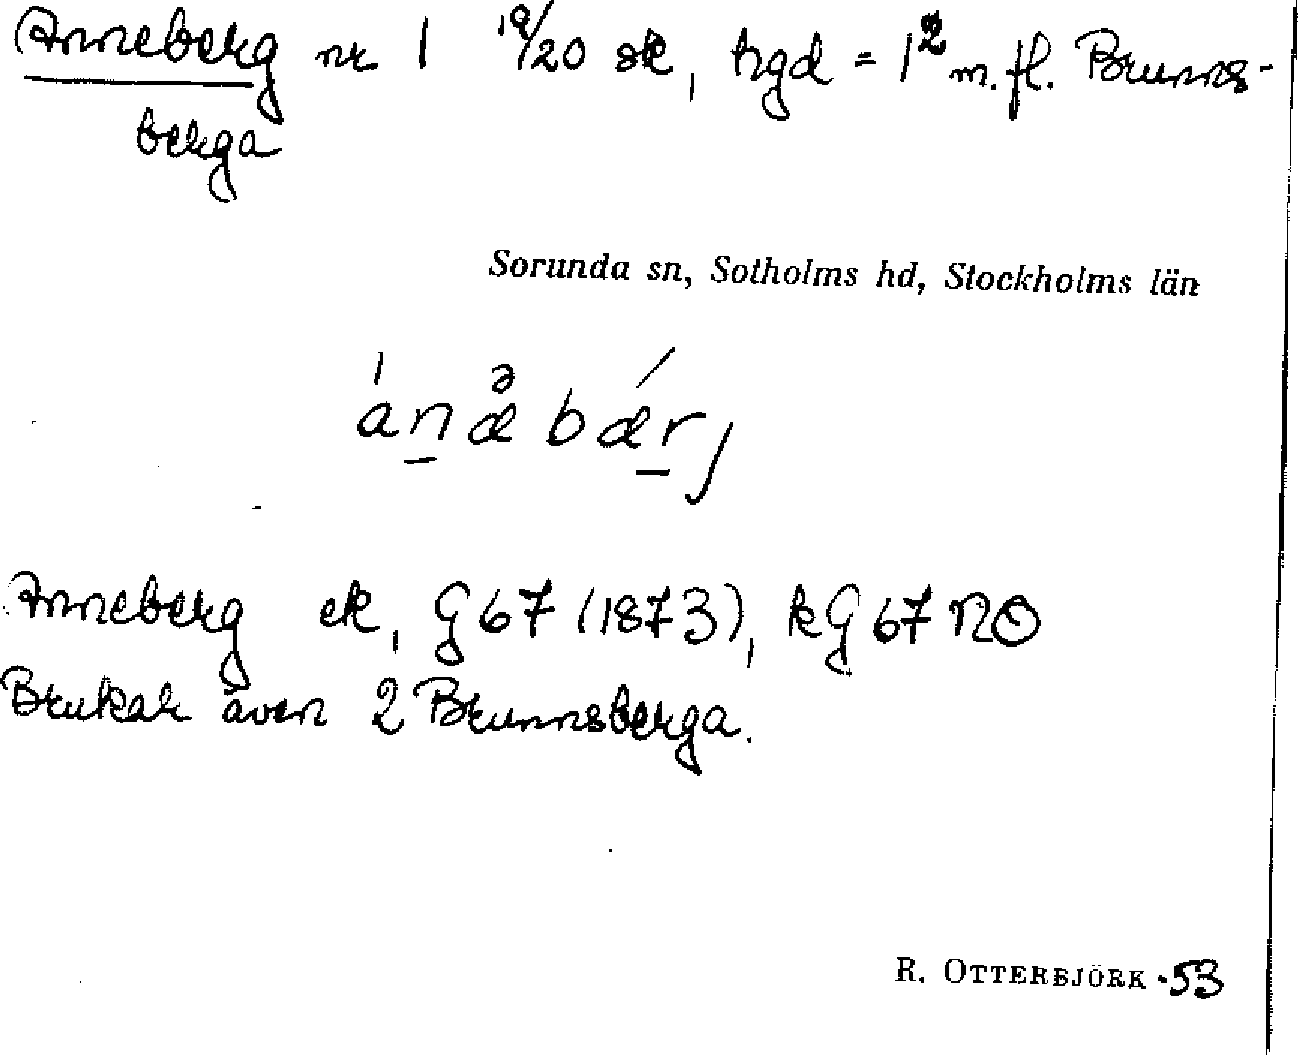 Anneberg nr 1 19/20 sk, hgd = 1² m. fl. Brunns-
berga
Sorunda sn, Sotholms hd, Stockholms län
ánæbǽrj
Anneberg ek, G 67 (1873), kG 67 NO
Brukar även 2 Brunnsberga.
R. OTTERBJÖRK -53